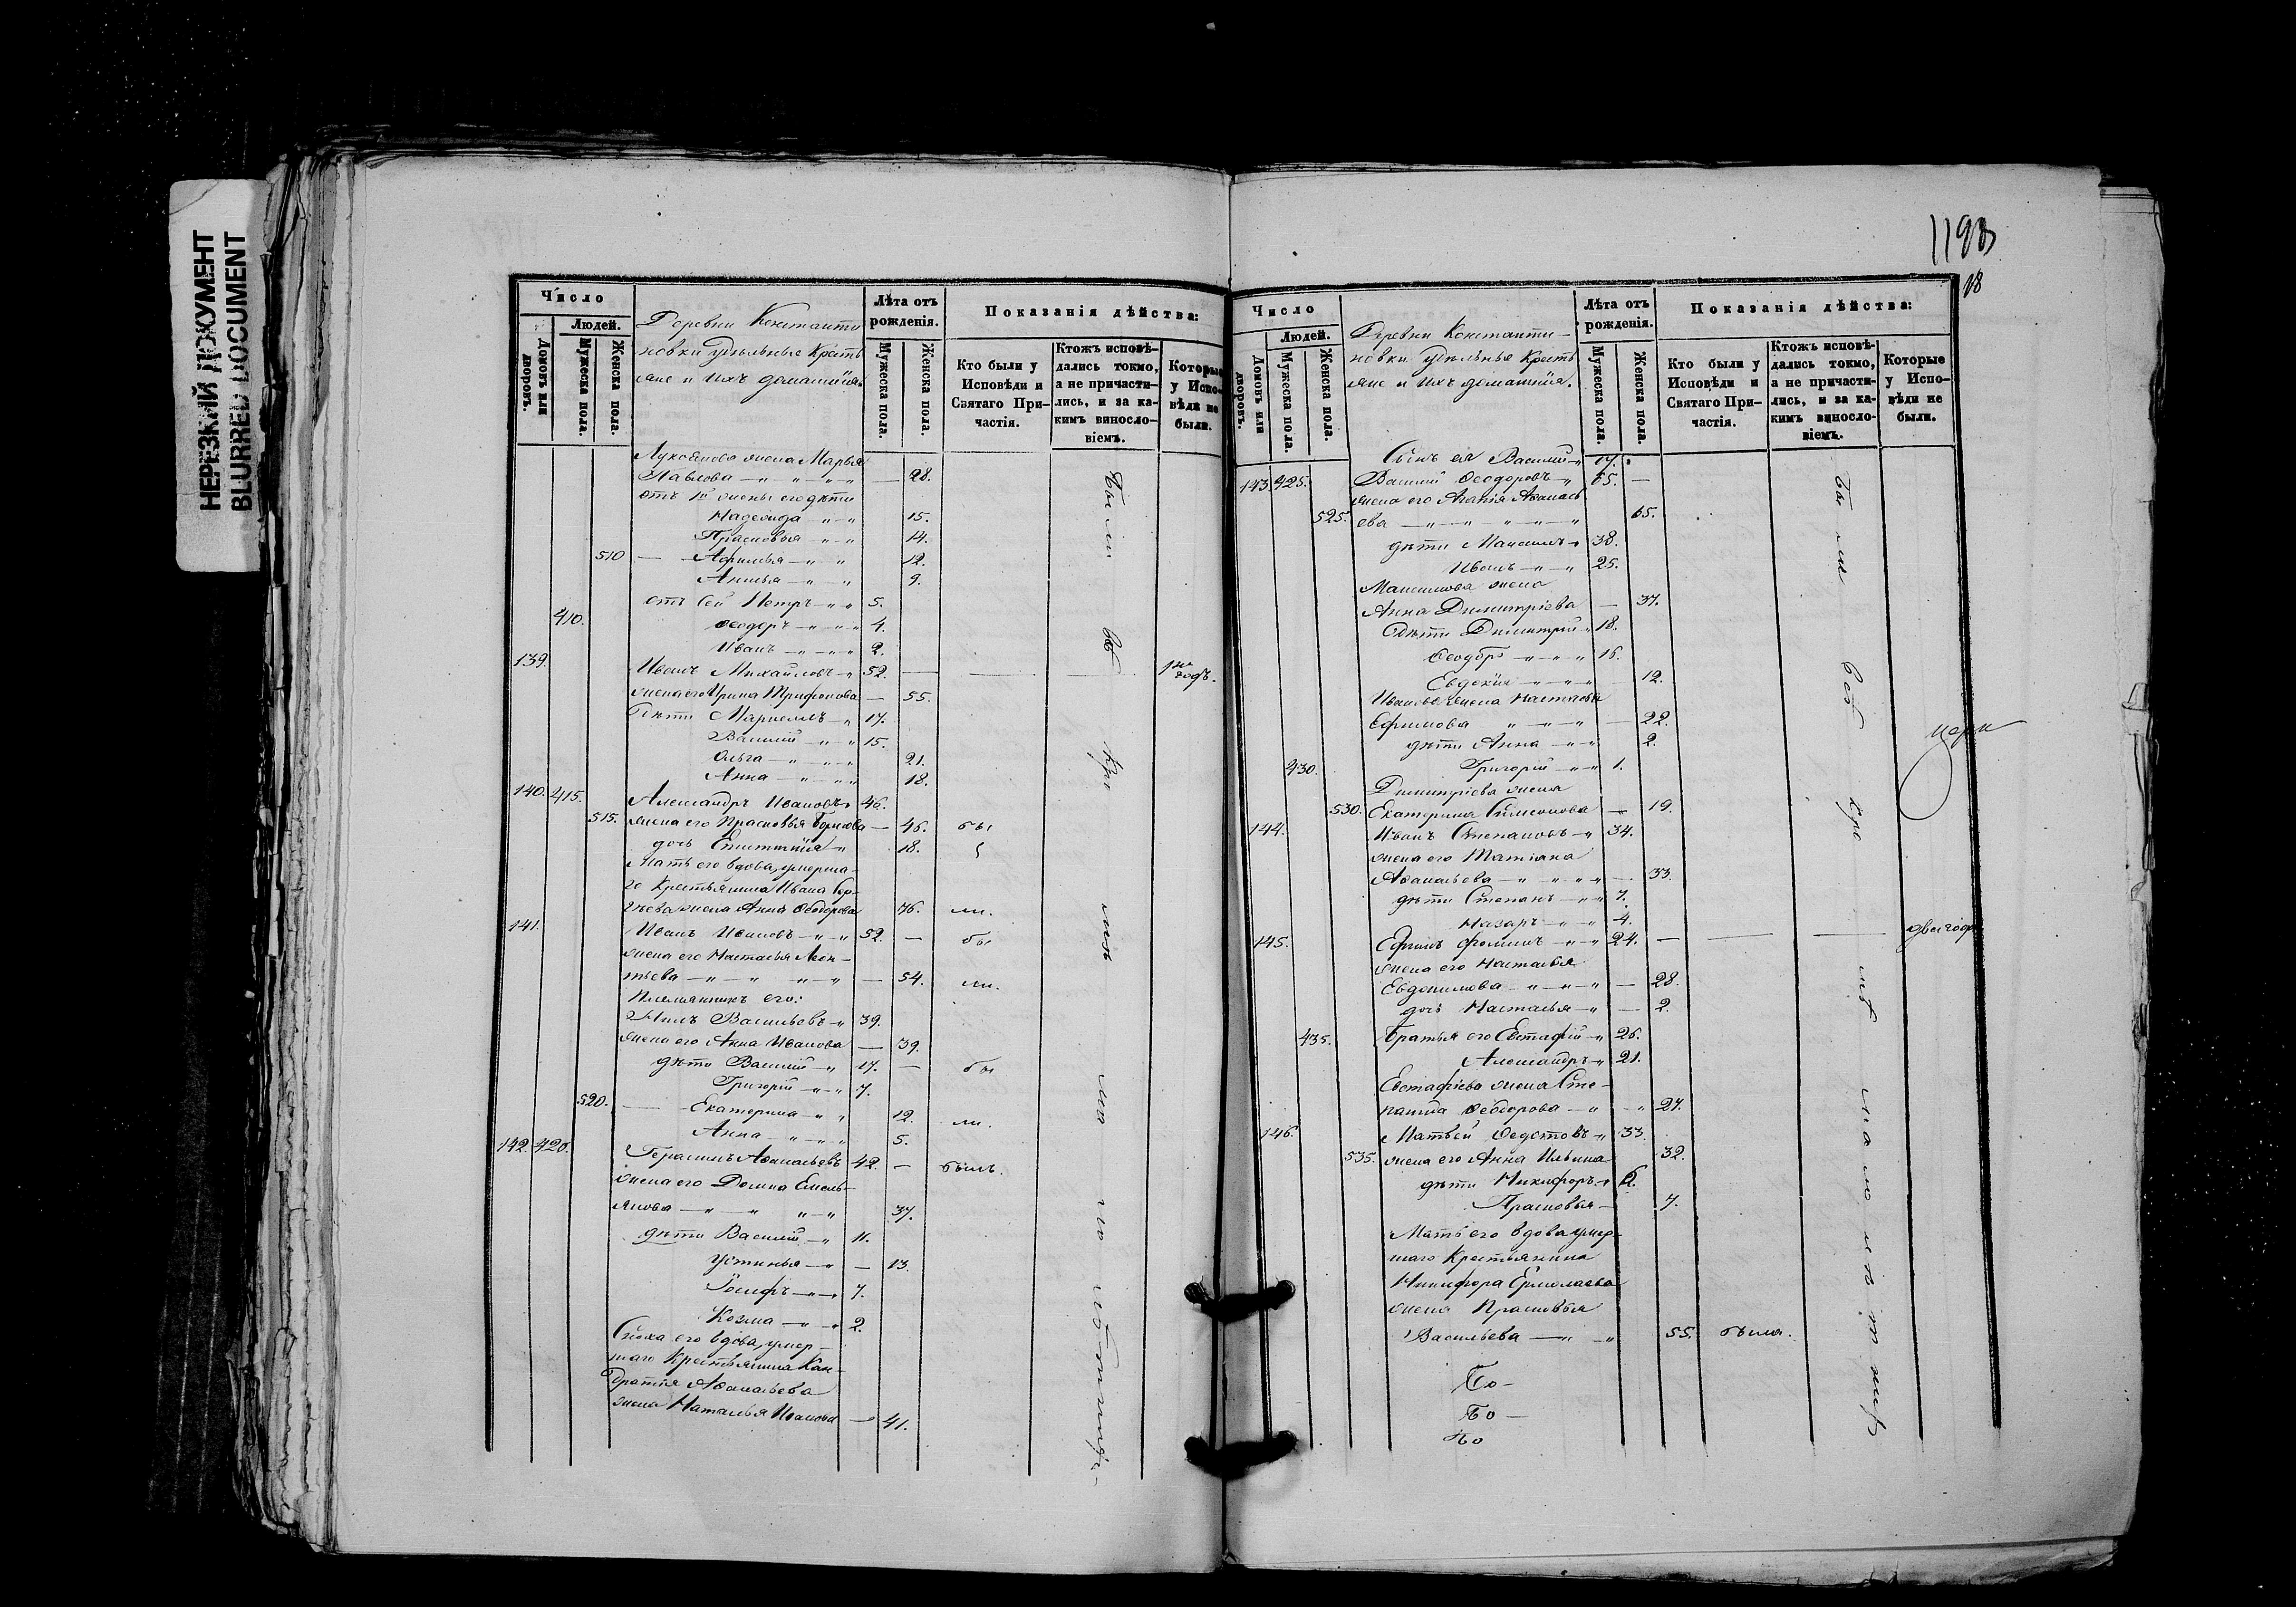 НЕРЕЗКИЙ ДОКУМЕНТ
BLURRED DOCUMENT
1193
18
Число
Людей.
Домовъ или дворовъ.
Мужеска пола.
Женска пола.
Деревни Константи
новки удѣльные Кресть
яне и ихъ домашнiя
Лѣта отъ рожденiя.
Мужеска пола.
Женска пола.
Показанiя дѣйства:
Кто были у Исповѣди и Святаго Причастiя.
Ктожъ исповѣдались токмо, а не причастились, и за какимъ винословiемъ.
Которые у Исповѣди не были.
жена Марья
Павлова 28.
отъ 1й жены его дѣти
Надежда 15.
Прасковья 14.
510 Афимья 12.
9.
отъ сей Петръ 5.
410. Ѳеодоръ 4.
Иванъ 2.
139. Иванъ Михайловъ 52.
жена его Ирина Трифонова 55.
Дѣти 17.
Василiй 15.
Ольга 21.
Анна 18.
140. 415. Александръ Ивановъ 46.
515. жена его Прасковья 46. бы
дочь 18.
Мать его вдова, умерша-
го Крестьянина Ивана
жена Анна Ѳеодорова 76. ли.
141. Иванъ Ивановъ 52. бы
жена его Настасья Леон-
тьева 54. ли.
Племянникъ его:
Васильевъ 39.
жена его Анна Иванова 39.
дѣти Василiй 17. бы
Григорiй 7.
520. Екатерина 12. ли.
Анна 5.
142. 420. Герасимъ Аѳанасьевъ 42. былъ.
жена его Домна Емель-
янова 37.
дѣти Василiй 11.
Устинья 13.
Iосифъ 7.
Козма 2.
Сноха его вдова, умер-
шаго Крестьянина Кон-
дратiя Аѳанасьева
жена Наталья Иванова 41.
Были
Число
Людей.
Домовъ или дворовъ.
Мужеска пола.
Женска пола.
Деревни Константи-
новки удѣльные Кресть
яне и ихъ домашнiя.
Лѣта отъ рожденiя.
Мужеска пола.
Женска пола.
Показанiя дѣйства:
Кто были у Исповѣди и Святаго Причастiя.
Ктожъ исповѣдались токмо, а не причастились, и за какимъ винословiемъ.
Которые у Исповѣди не были.
Сынъ ея Василiй 17.
143. 425. Василiй Ѳеодоровъ 65.
жена его Агафiя Аѳанась
525. ева 65.
дѣти Максимъ 38.
Иванъ 25.
Максимова жена
Анна Димитрiева 37.
Дѣти Димитрiй 18.
Ѳеодоръ 16.
Евдокiя 12.
Иванова жена Настасья
Ефимова 22.
дѣти Анна 2.
430. Григорiй 1.
Димитрiева жена
530. Екатерина Симеонова 19.
144. Иванъ Степановъ 34.
жена его Татiана
Аѳанасьева 33.
дѣти Степанъ 7.
Назаръ 4.
145. Ефимъ Фоминъ 24. два года
жена его Настасья
Евдокимова 28.
дочь Настасья 2.
435. Братья его Евстафiй 26.
Александръ 21.
Евстафiева жена Сте-
панида Ѳеодорова 27.
146. Матвей Ѳедотовъ 33.
535. жена его Анна Ильина 32.
дѣти Никифоръ 6.
Прасковья 7.
Мать его вдова умер-
шаго Крестьянина
Никифора Ермолаева
жена Прасковья
Васильева 55. была.
Были